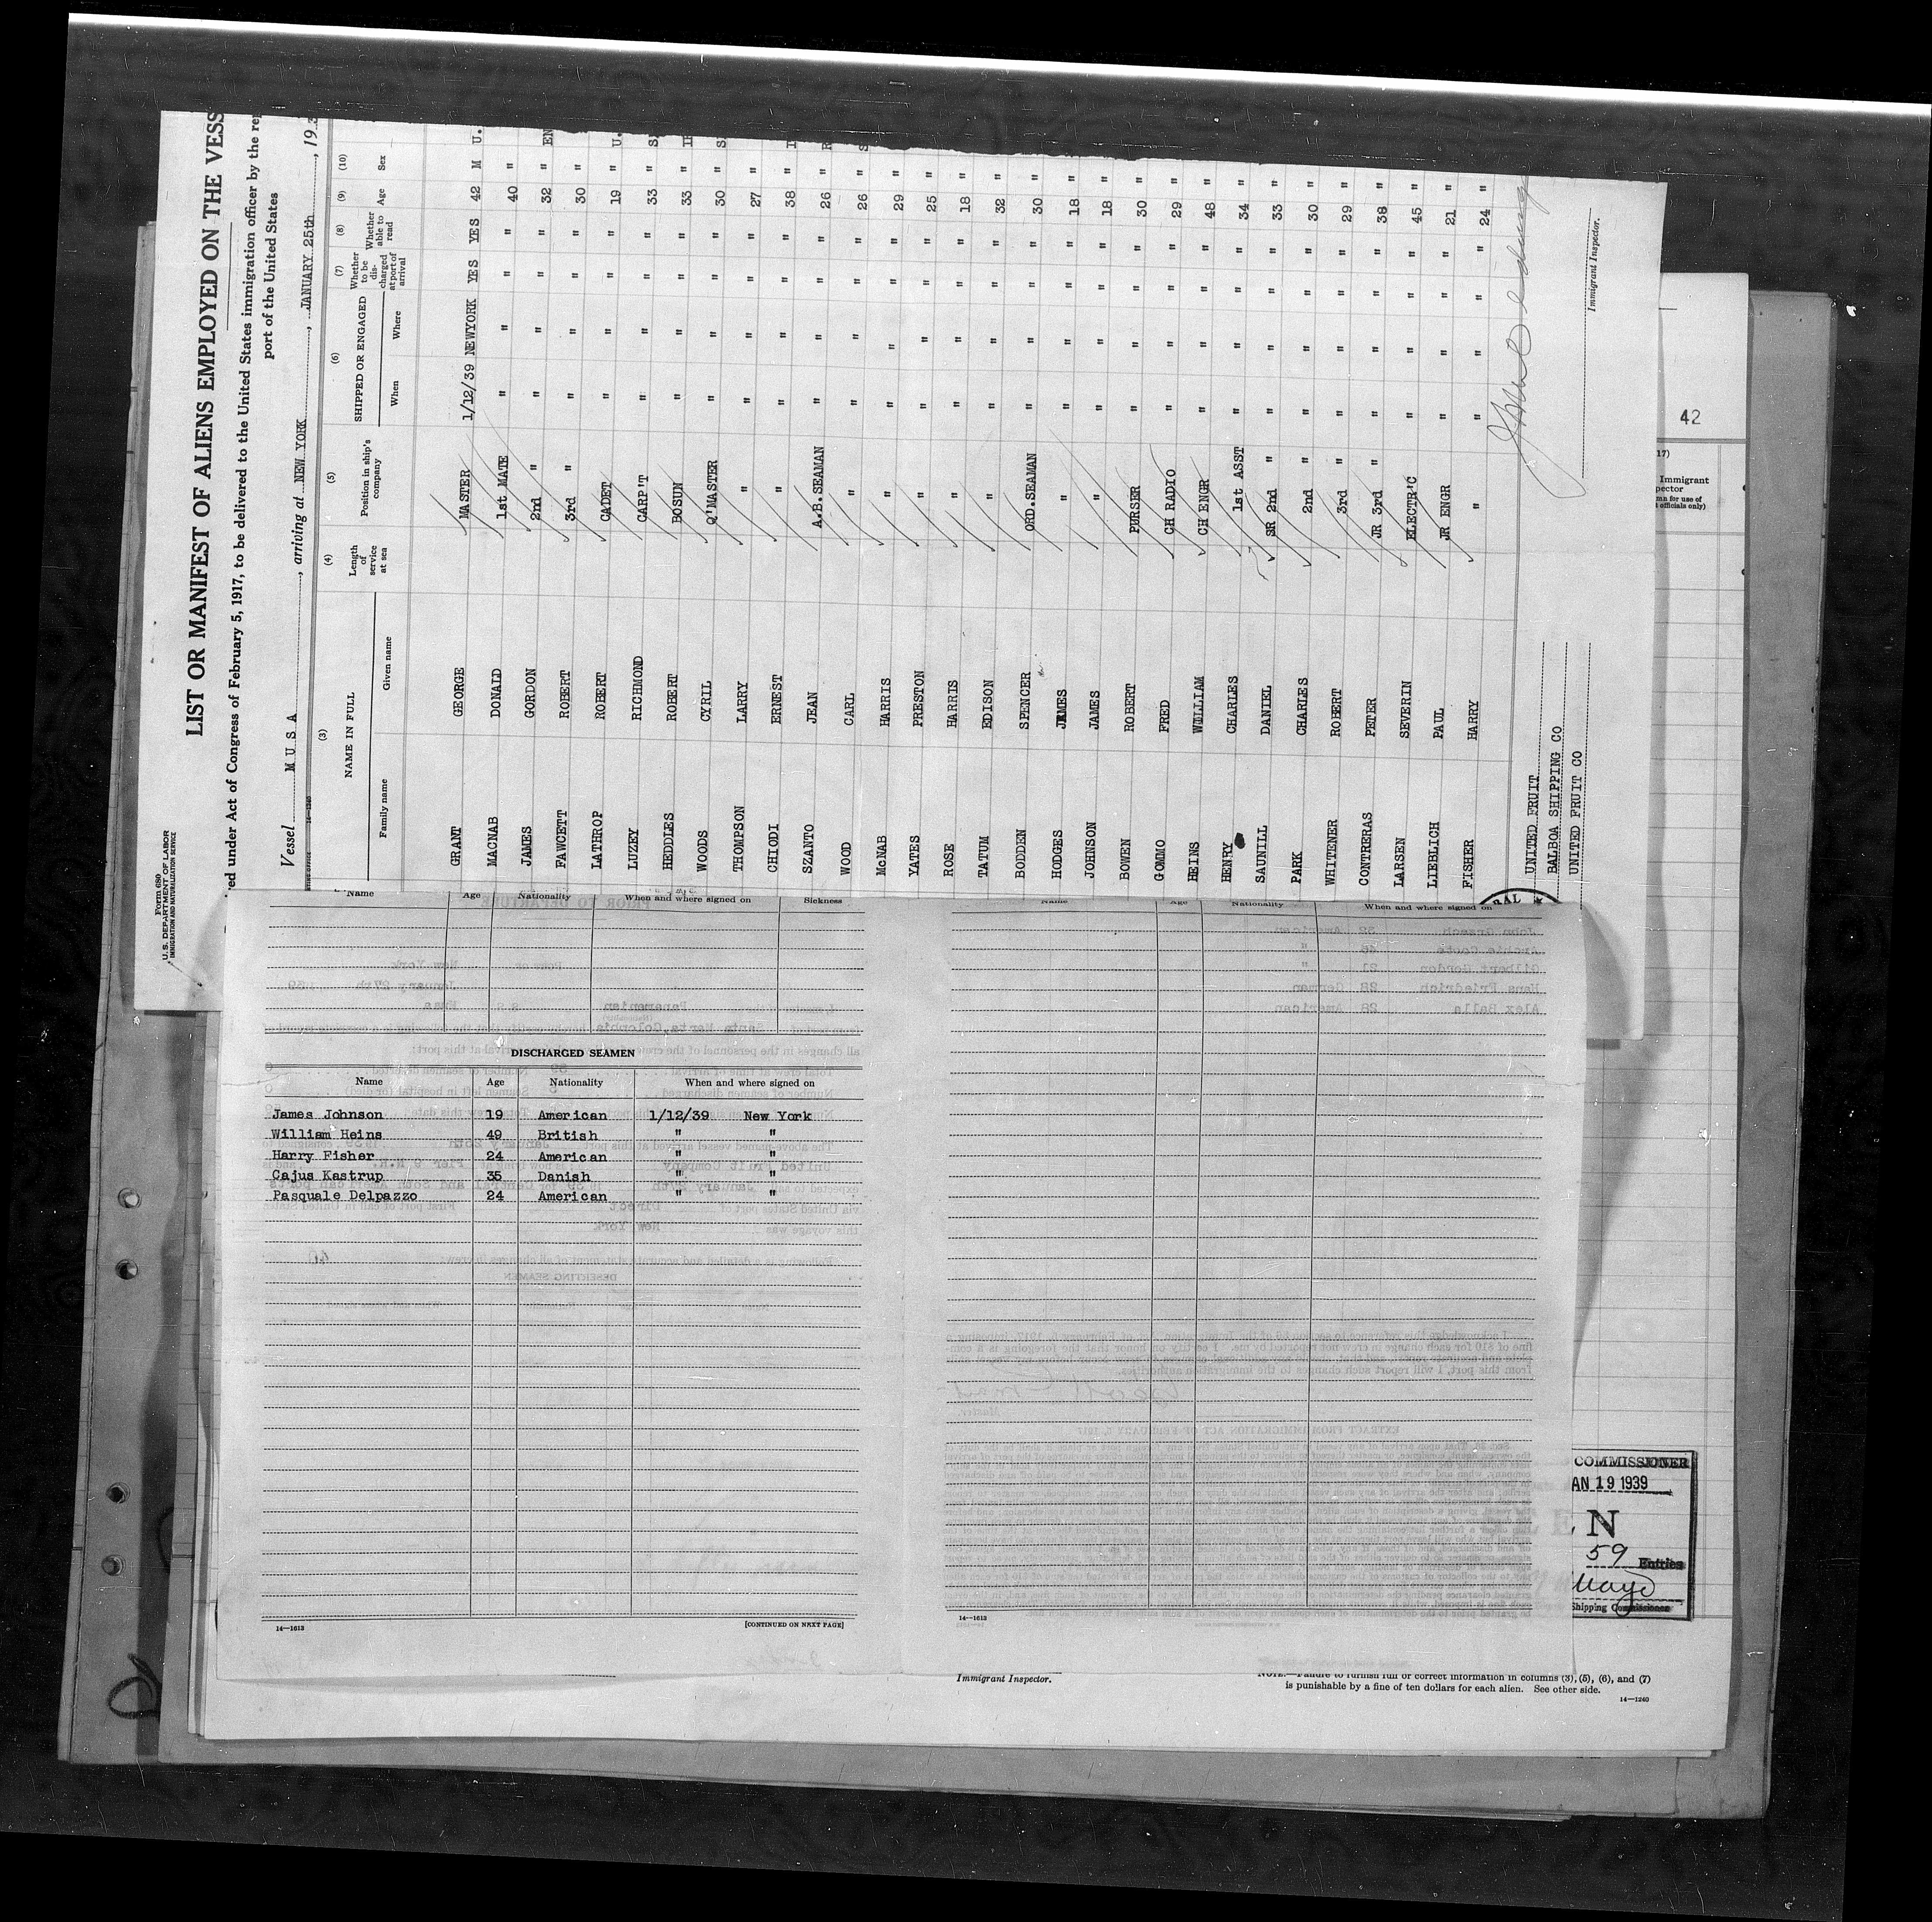 Form 680
U.S. DEPARTMENT OF LABOR
IMMIGRATION AND NATURALIZATION SERVICE
LIST OR MANIFEST OF ALIENS EMPLOYED ON THE VESS
ed under Act of Congress of February 5, 1917, to be delivered to the United States immigration officer by the
port of the United States
Vessel M U S A, arriving at NEW YORK, JANUARY 25th, 193
(3) (4) (5) (6) (7) (8) (9) (10)
NAME IN FULL Length of service at sea Position in ship's company SHIPPED OR ENGAGED Whether to be discharged at port of arrival Whether able to read Age Sex
Family name Given name When Where
GRANT GEORGE MASTER 1/12/39 NEWYORK YES YES 42 M U.
MACNAB DONALD 1st MATE " " " " 40 "
JAMES GORDON 2nd " " " " " 32 " EN
FAWCETT ROBERT 3rd " " " " " 30 "
LATHROP ROBERT CADET " " " " 19 " U.
LUZEY RICHMOND CARP'T " " " " 33 "
HEDDLES ROBERT BOSUN " " " " 33 "
WOODS CYRIL Q'MASTER " " " " 30 "
THOMPSON LARRY " " " " " 27 "
CHIODI ERNEST " " " " " 38 "
SZANTO JEAN A.B.SEAMAN " " " " 26 "
WOOD CARL " " " " " 26 "
McNAB HARRIS " " " " " 29 "
YATES PRESTON " " " " " 25 "
ROSE HARRIS " " " " " 18 "
TATUM EDISON " " " " " 32 "
BODDEN SPENCER ORD.SEAMAN " " " " 30 "
HODGES JAMES " " " " " 18 "
JOHNSON JAMES " " " " " 18 "
BOWEN ROBERT PURSER " " " " 30 "
GOMMO FRED CH RADIO " " " " 29 "
HEINS WILLIAM CH ENGR " " " " 48 "
HENRY CHARLES 1st ASST " " " " 34 "
SAUNILL DANIEL SR 2nd " " " " " 33 "
PARK CHARLES 2nd " " " " " 30 "
WHITENER ROBERT 3rd " " " " " 29 "
CONTRERAS PETER JR 3rd " " " " " 38 "
LARSEN SEVERIN ELECTR'C " " " " 45 "
LIEBLICH PAUL JR ENGR " " " " 21 "
FISHER HARRY " " " " " 24 "
UNITED FRUIT
BALBOA SHIPPING CO
UNITED FRUIT CO
Immigrant Inspector.
42
17)
Immigrant
pector
officials only)
Name Age Nationality When and where signed on Sickness
DISCHARGED SEAMEN
Name Age Nationality When and where signed on
James Johnson 19 American 1/12/39 New York
William Heins 49 British " "
Harry Fisher 24 American " "
Cajus Kastrup 35 Danish " "
Pasquale Delpazzo 24 American " "
14—1613 [CONTINUED ON NEXT PAGE]
Name Age Nationality When and where signed on
14—1613
COMMISSIONER
AN 19 1939
EN
59 Entries
Shipping Commissioner
Immigrant Inspector.
NOTE.—Failure to furnish full or correct information in columns (3), (5), (6), and (7)
is punishable by a fine of ten dollars for each alien. See other side.
14—1240